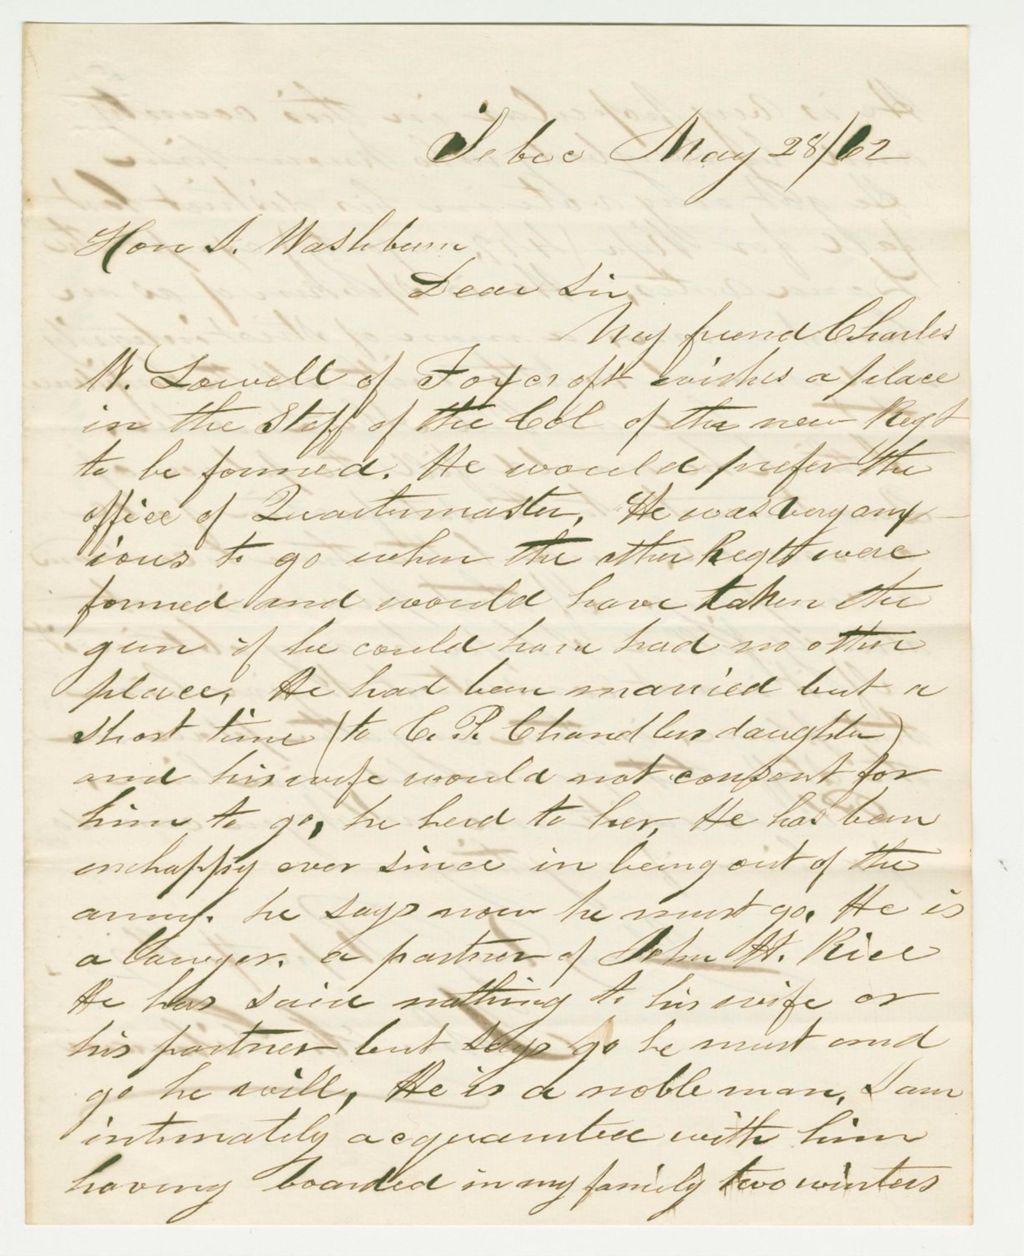 Sebec May 28/62
Hon I. Washburn
Dear Sir
My friend Charles
W. Lowell of Foxcroft wishes a place
in the Staff of the Col of the new Regt
to be formed. He would prefer the
office of Quartermaster, He was very anx-
ious to go when the other Regts were
formed and would have taken the
gun if he could have had no other
place, He had been married but a
short time (to C. P. Chandlers daughter)
and his wife would not consent for
him to go, he heed to her, He has been
unhappy ever since in being out of the
army. he says now he must go, He is
a lawyer. a partner of John H. Rice
He has said nothing to his wife or
his partner but says go he must and
go he will, He is a noble man, I am
intimately acquainted with him
having boarded in my family two winters